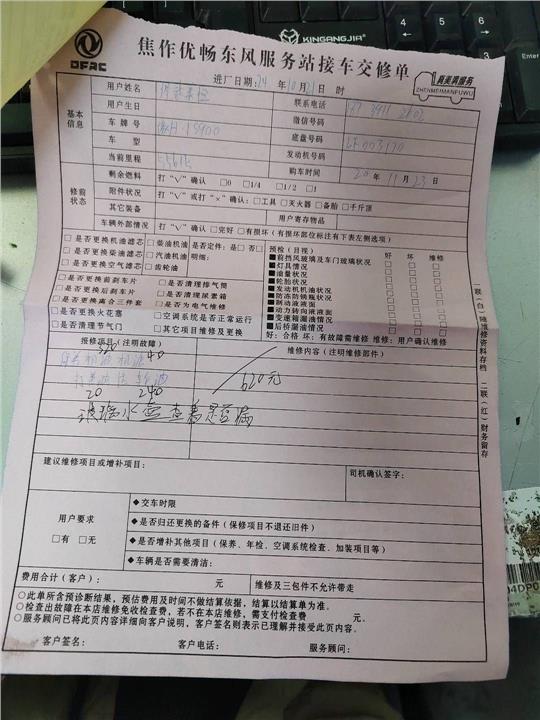 KINGANGJIA
DFAC
焦作优畅东风服务站接车交修单
真美满服务
ZHENMEIMANFUWU
进厂日期:24 年 10 月 21 日 时
基本信息
用户姓名
联系电话
用户生日
微信号码
车牌号
底盘号码
LF003170
车型
发动机号码
当前里程
购车时间
20 年 11 月 23 日
修前状态
剩余燃料 打“√”确认 □0 □1/4 □1/2 □1
附件状况 打“√”或打“×”确认:□工具 □灭火器 □备胎 □千斤顶
其它装备
用户寄存物品
车辆外部情况 打“√”确认 □完好 □有损坏(有损坏部位标注有下表左侧选项)
□是否更换机油滤芯 □柴油机油 是否定件:是□ 否□
□是否更换柴油滤芯 □汽油机油 明细:
□是否更换空气滤芯 □齿轮油
□是否更换前刹车片 □是否清理排气筒
□是否更换后刹车片 □是否清理尿素箱
□是否更换离合三件套 □是否为电气维修
□是否更换火花塞 □空调系统是否正常运行
□是否清理节气门 □其它项目维修及更换
预检(目视) 好 坏 维修
■前挡风玻璃及车门玻璃状况 □ □ □
■灯具情况 □ □ □
■油量状况 □ □ □
■轮胎状况 □ □ □
■发动机机油状况 □ □ □
■防冻防锈瓶状况 □ □ □
■制动液液面 □ □ □
■动力转向液液面 □ □ □
■变速箱漏油情况 □ □ □
■后桥漏油情况 □ □ □
好:合格 坏:有故障需维修 维修:用户确认维修
报修项目(注明故障)
维修内容(注明维修部件)
320 40
620元
20 240
玻璃水壶查看是否漏
建议维修项目或增补项目:
司机确认签字:
用户要求
□有 □无
◆交车时限
◆是否归还更换的备件(保修项目不退还旧件)
◆是否增补其他项目(保养、年检、空调系统检查、加装项目等)
◆车辆是否需要清洁:
费用合计(客户): 元
维修及三包件不允许带走
○此单所含预诊断结果,预估费用及时间不做结算依据,结算以结算单为准。
○检查出故障在本店维修免收检查费,若不在本店维修,需支付检查费 元。
○服务顾问已将此页内容详细向客户说明,客户签名则表示已理解并接受此页内容。
客户签名: 客户电话: 服务顾问:
一联(白)随维修资料存档 二联(红)财务留存